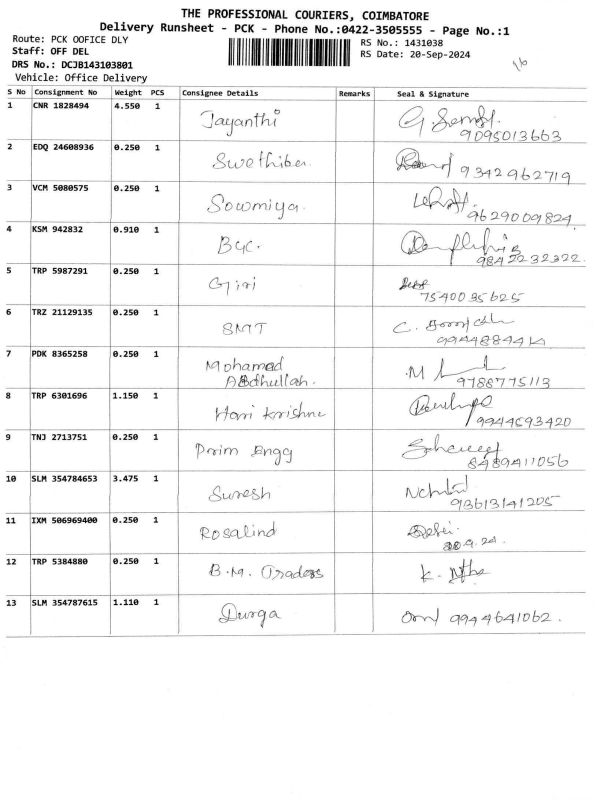 THE PROFESSIONAL COURIERS, COIMBATORE
Delivery Runsheet - PCK - Phone No.:0422-3505555 - Page No.:1
Route: PCK OOFICE DLY
RS No.: 1431038
Staff: OFF DEL
RS Date: 20-Sep-2024
DRS No.: DCJB143103801
Vehicle: Office Delivery
S No Consignment No Weight PCS Consignee Details Remarks Seal & Signature
1 CNR 1828494 4.550 1 Jayanthi
9095013663
2 EDQ 24608936 0.250 1 Swethiba
9342962719
3 VCM 5080575 0.250 1 Sowmiya
9629009824
4 KSM 942832 0.910 1
9842232322
5 TRP 5987291 0.250 1 Giri
7540035625
6 TRZ 21129135 0.250 1 SMT
9944884414
7 PDK 8365258 0.250 1 Mohamed
Abdhullah.
9788775113
8 TRP 6301696 1.150 1 Hari Krishna
9944593420
9 TNJ 2713751 0.250 1 Prim Engg
8489411056
10 SLM 354784653 3.475 1 Suresh
93613141205
11 IXM 506969400 0.250 1 Rosalind
20.9.24.
12 TRP 5384880 0.250 1 B.M. Traders
13 SLM 354787615 1.110 1 Durga 9944641062.